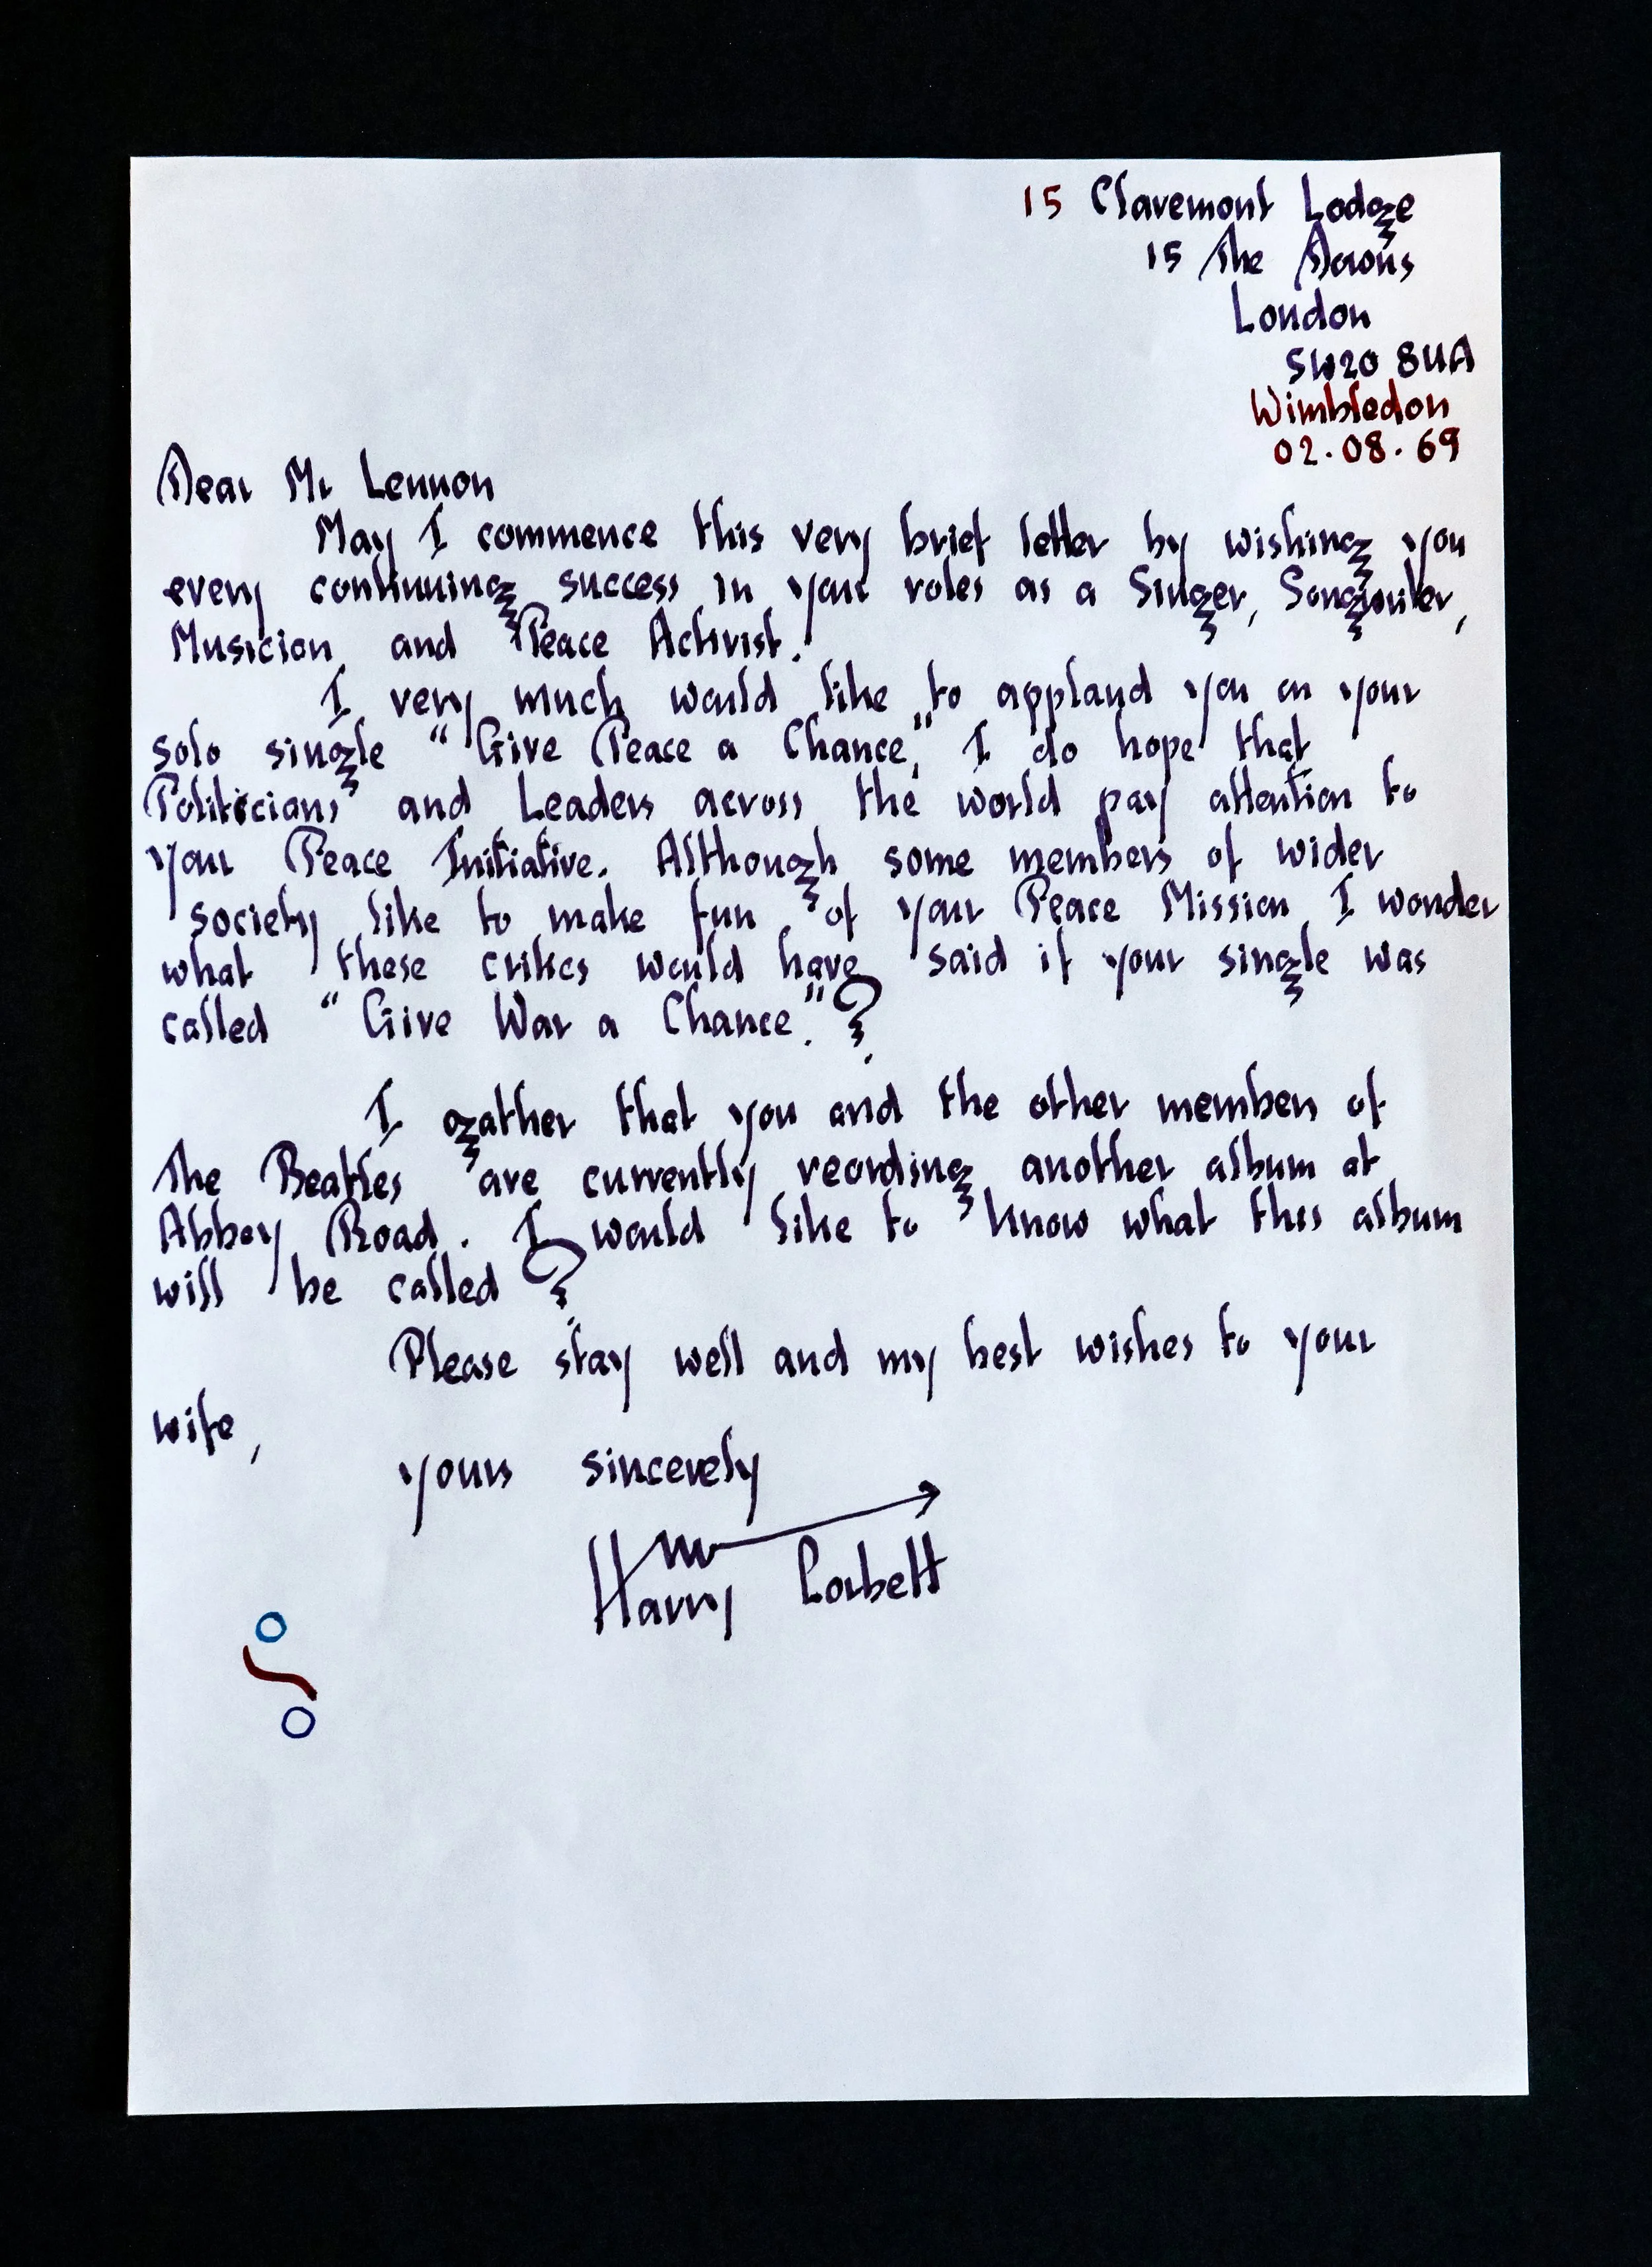 15 Claremont Lodge
15 The Downs
London
SW20 8UA
Wimbledon
02.08.69
Dear Mr Lennon
May I commence this very brief letter by wishing you
every continuing success in your roles as a Singer, Songwriter,
Musician, and Peace Activist.
I very much would like to applaud you on your
solo single "Give Peace a Chance," I do hope that
Politicians and Leaders across the world pay attention to
your Peace Initiative. Although some members of wider
society like to make fun of your Peace Mission I wonder
what these critics would have said if your single was
called "Give War a Chance."?
I gather that you and the other members of
The Beatles are currently reording another album at
Abbey Road. I would like to know what this album
will be called?
Please stay well and my best wishes to your
wife,
yours sincerely
Harry Corbett